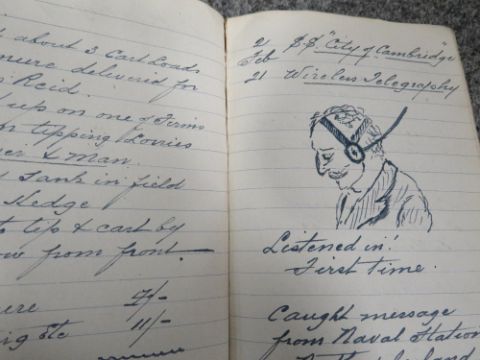 about 3 Cart Loads
delivered for
Reid.
up on one of Firms
tipping Lorries
& Man.
Tank in field
Hedge
tip & cart by
from front.
7/-
etc 11/-
2 S.S. "City of Cambridge"
Feb
21 Wireless Telegraphy
Listened in!
First time.
Caught message
from Naval Station